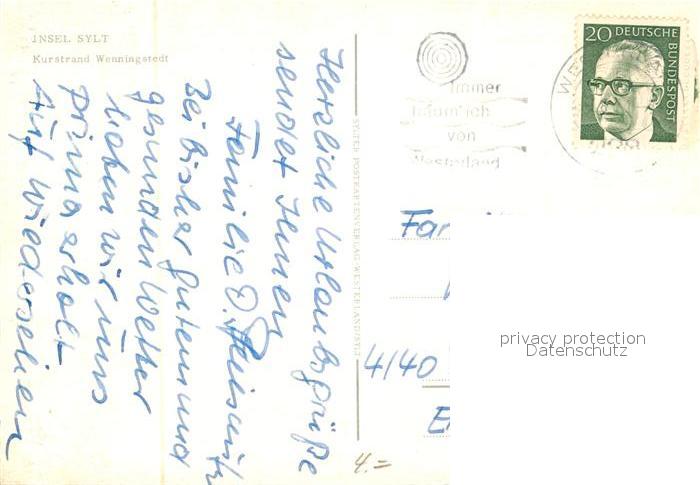 INSEL SYLT
Kurstrand Wenningstedt
Herzliche Urlaubsgrüße
sendet Ihnen
Familie D.
Bei bisher gutem und
gesunden Wetter
haben wir uns
prima erholt
Auf Wiedersehen
SYLTER POSTKARTENVERLAG · WESTERLAND/SYLT
immer
träum' ich
von
Westerland
20 DEUTSCHE
BUNDESPOST
WE
Fam
4140
E
privacy protection
Datenschutz
4.=